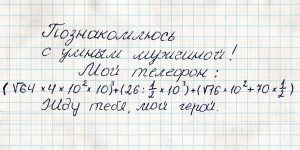 Познакомлюсь
с умным мужчиной!
Мой телефон:
(√64 × 4 × 10² × 10)+(26 : 1/2 × 10³)+(√76 × 10² + 70 × 1/2)
Жду тебя, мой герой.